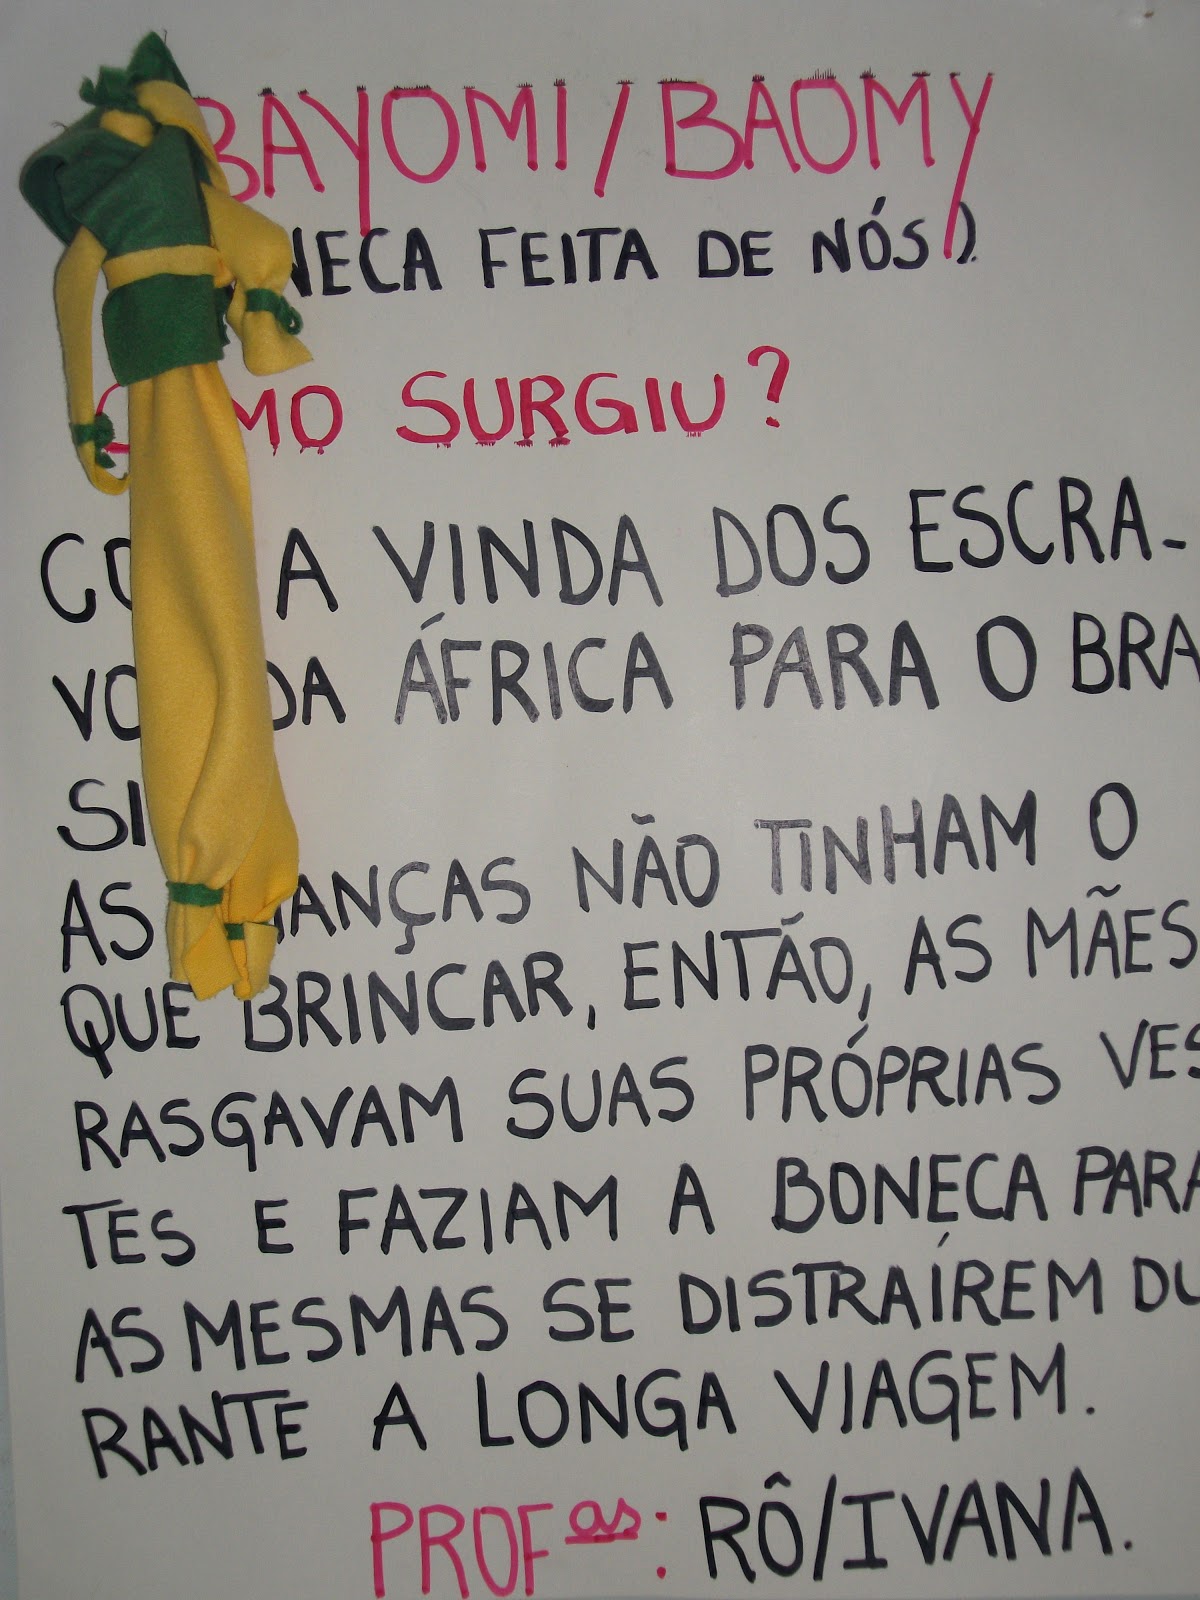 BAYOMI / BAOMY
NECA FEITA DE NÓS).
COMO SURGIU?
CO A VINDA DOS ESCRA-
VO DA ÁFRICA PARA O BRA
SI
AS IANÇAS NÃO TINHAM O
QUE BRINCAR, ENTÃO, AS MÃES
RASGAVAM SUAS PRÓPRIAS VES
TES E FAZIAM A BONECA PARA
AS MESMAS SE DISTRAÍREM DU
RANTE A LONGA VIAGEM.
PROFas: RÔ/IVANA.